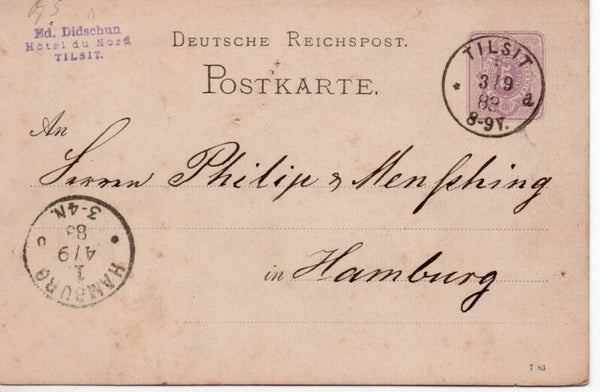 Ed. Didschun
Hôtel du Nord
TILSIT.
DEUTSCHE REICHSPOST.
POSTKARTE.
TILSIT
3/9
83
8-9V.
* a
An
Herrn Philip & Menshing
in Hamburg
HAMBURG
1
4/9
83
3-4N.
* c
7 83